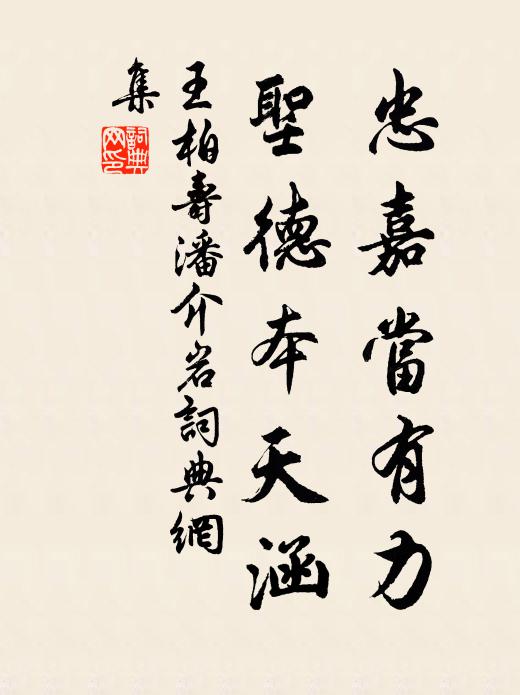 忠嘉當有力
聖德本天涵
王柏壽潘介岩詞典網
集
詞典網印